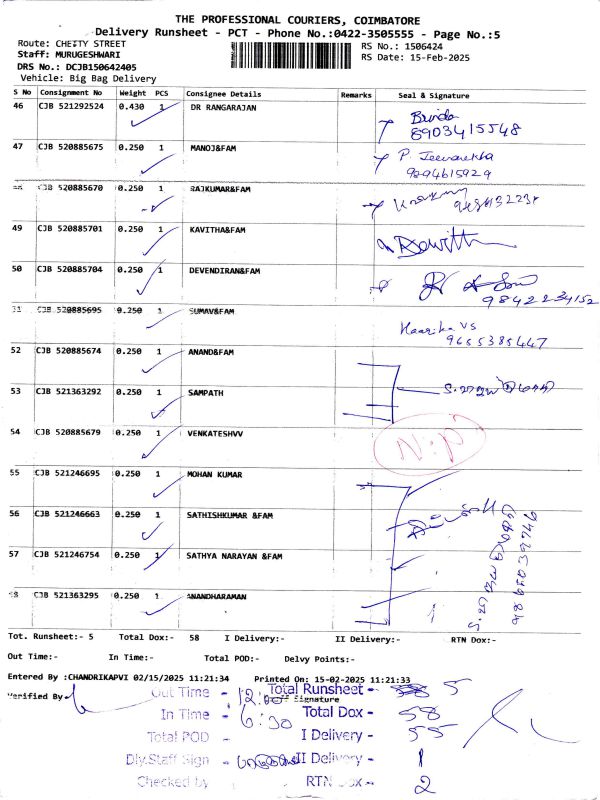 THE PROFESSIONAL COURIERS, COIMBATORE
Delivery Runsheet - PCT - Phone No.:0422-3505555 - Page No.:5
Route: CHETTY STREET
RS No.: 1506424
Staff: MURUGESHWARI
RS Date: 15-Feb-2025
DRS No.: DCJB150642405
Vehicle: Big Bag Delivery
S No Consignment No Weight PCS Consignee Details Remarks Seal & Signature
46 CJB 521292524 0.430 1 DR RANGARAJAN Brinda
8903415548
47 CJB 520885675 0.250 1 MANOJ&FAM P. Jeevarekha
9894615929
CJB 520885670 0.250 1 RAJKUMAR&FAM
49 CJB 520885701 0.250 1 KAVITHA&FAM
50 CJB 520885704 0.250 1 DEVENDIRAN&FAM
98422 34152
51 CJB 520885695 0.250 1 SUMAV&FAM Haarika VS
9655385447
52 CJB 520885674 0.250 1 ANAND&FAM
53 CJB 521363292 0.250 1 SAMPATH
54 CJB 520885679 0.250 1 VENKATESHVV
55 CJB 521246695 0.250 1 MOHAN KUMAR
56 CJB 521246663 0.250 1 SATHISHKUMAR &FAM
57 CJB 521246754 0.250 1 SATHYA NARAYAN &FAM
58 CJB 521363295 0.250 1 ANANDHARAMAN
Tot. Runsheet:- 5 Total Dox:- 58 I Delivery:- II Delivery:- RTN Dox:-
Out Time:- In Time:- Total POD:- Delvy Points:-
Entered By :CHANDRIKAPVI 02/15/2025 11:21:34 Printed On: 15-02-2025 11:21:33
Verified By Signature
Out Time - 12:00 Total Runsheet - 5
In Time - 6:30 Total Dox - 58
Total POD - I Delivery - 55
Dly.Staff Sign - II Delivery - 1
Checked by RTN Dox - 2